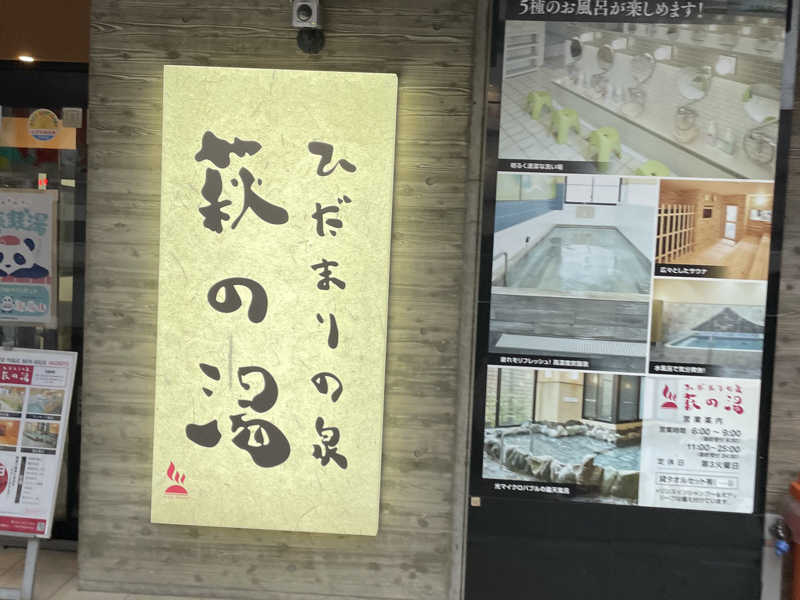 ひだまりの泉
萩の湯
5種のお風呂が楽しめます!
明るく清潔な洗い場
広々としたサウナ
疲れもリフレッシュ!高濃度炭酸泉
水風呂で気分爽快!
光マイクロバブルの露天風呂
ひだまりの泉
萩の湯
営業案内
営業時間 6:00〜9:00
11:00〜25:00
定休日 第3火曜日
貸タオルセット有
萩の湯